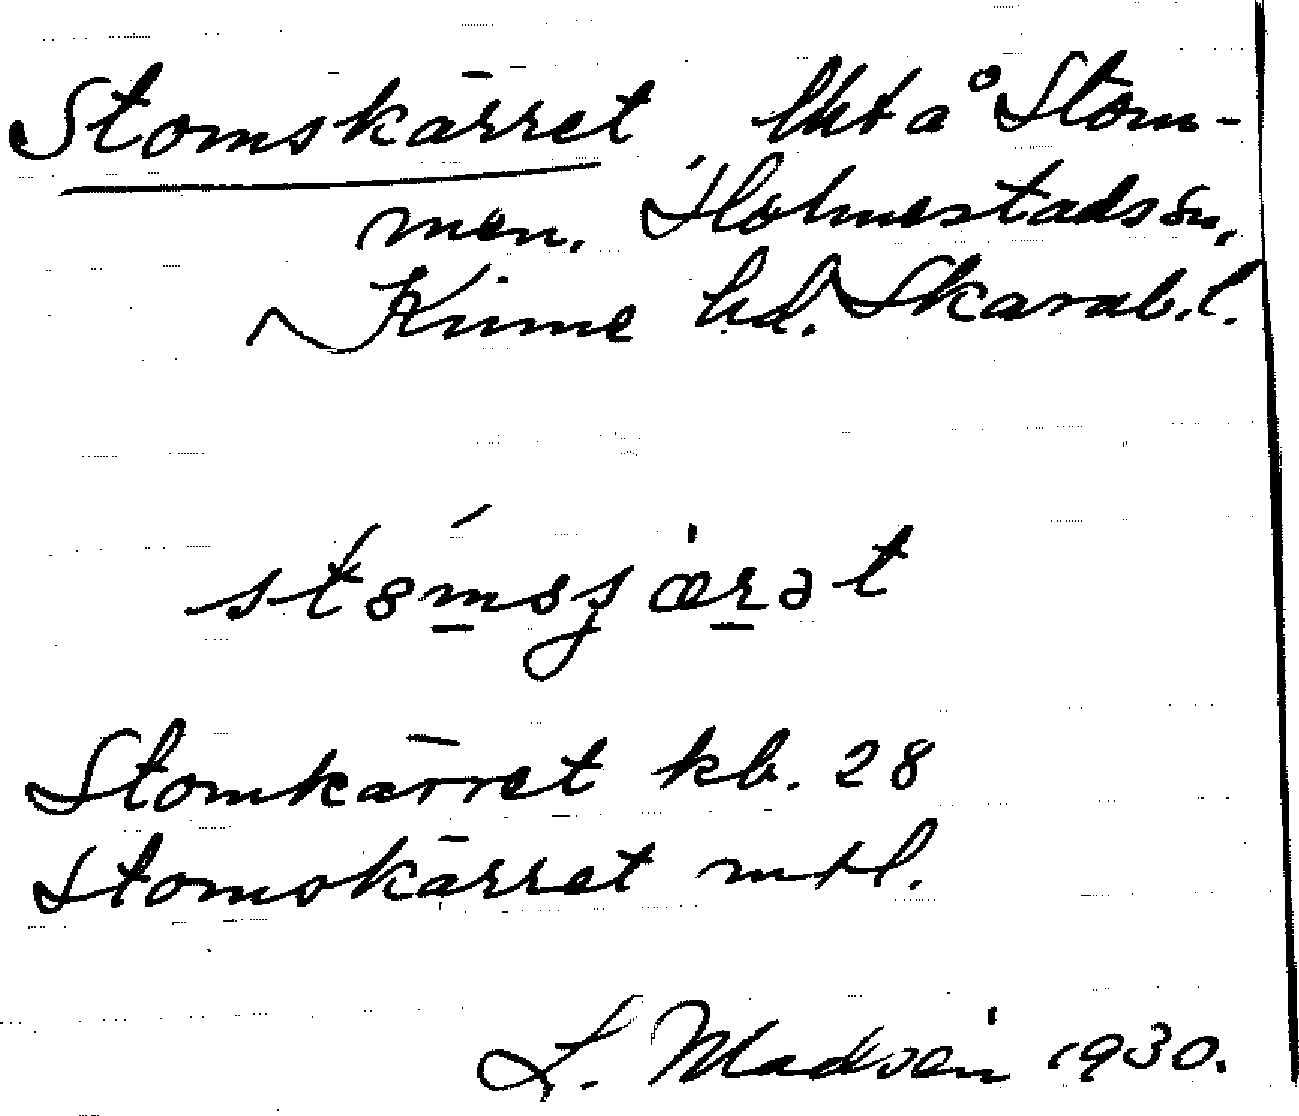 Stomskärret lht å Stom-
men. Holmestads sn,
Kinne hd. Skarab.l.
Stomkärret kb. 28
Stomskärret mtl.
L. Madsén 1930.